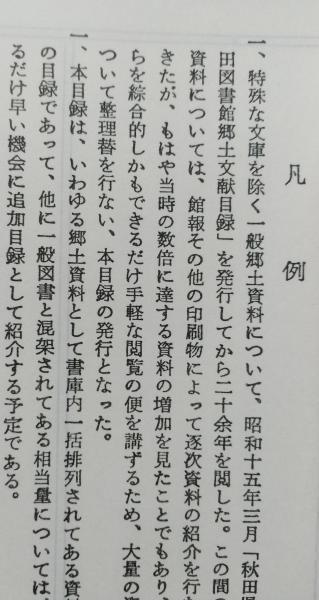 凡例
一、特殊な文庫を除く一般郷土資料について、昭和十五年三月「秋田県
田図書館郷土文献目録」を発行してから二十余年を閲した。この間の
資料については、館報その他の印刷物によって逐次資料の紹介を行な
きたが、もはや当時の数倍に達する資料の増加を見たことでもあり、
らを綜合的しかもできるだけ手軽な閲覧の便を講ずるため、大量の
ついて整理替を行ない、本目録の発行となった。
一、本目録は、いわゆる郷土資料として書庫内一括排列されてある資
の目録であって、他に一般図書と混架されてある相当量については、
るだけ早い機会に追加目録として紹介する予定である。